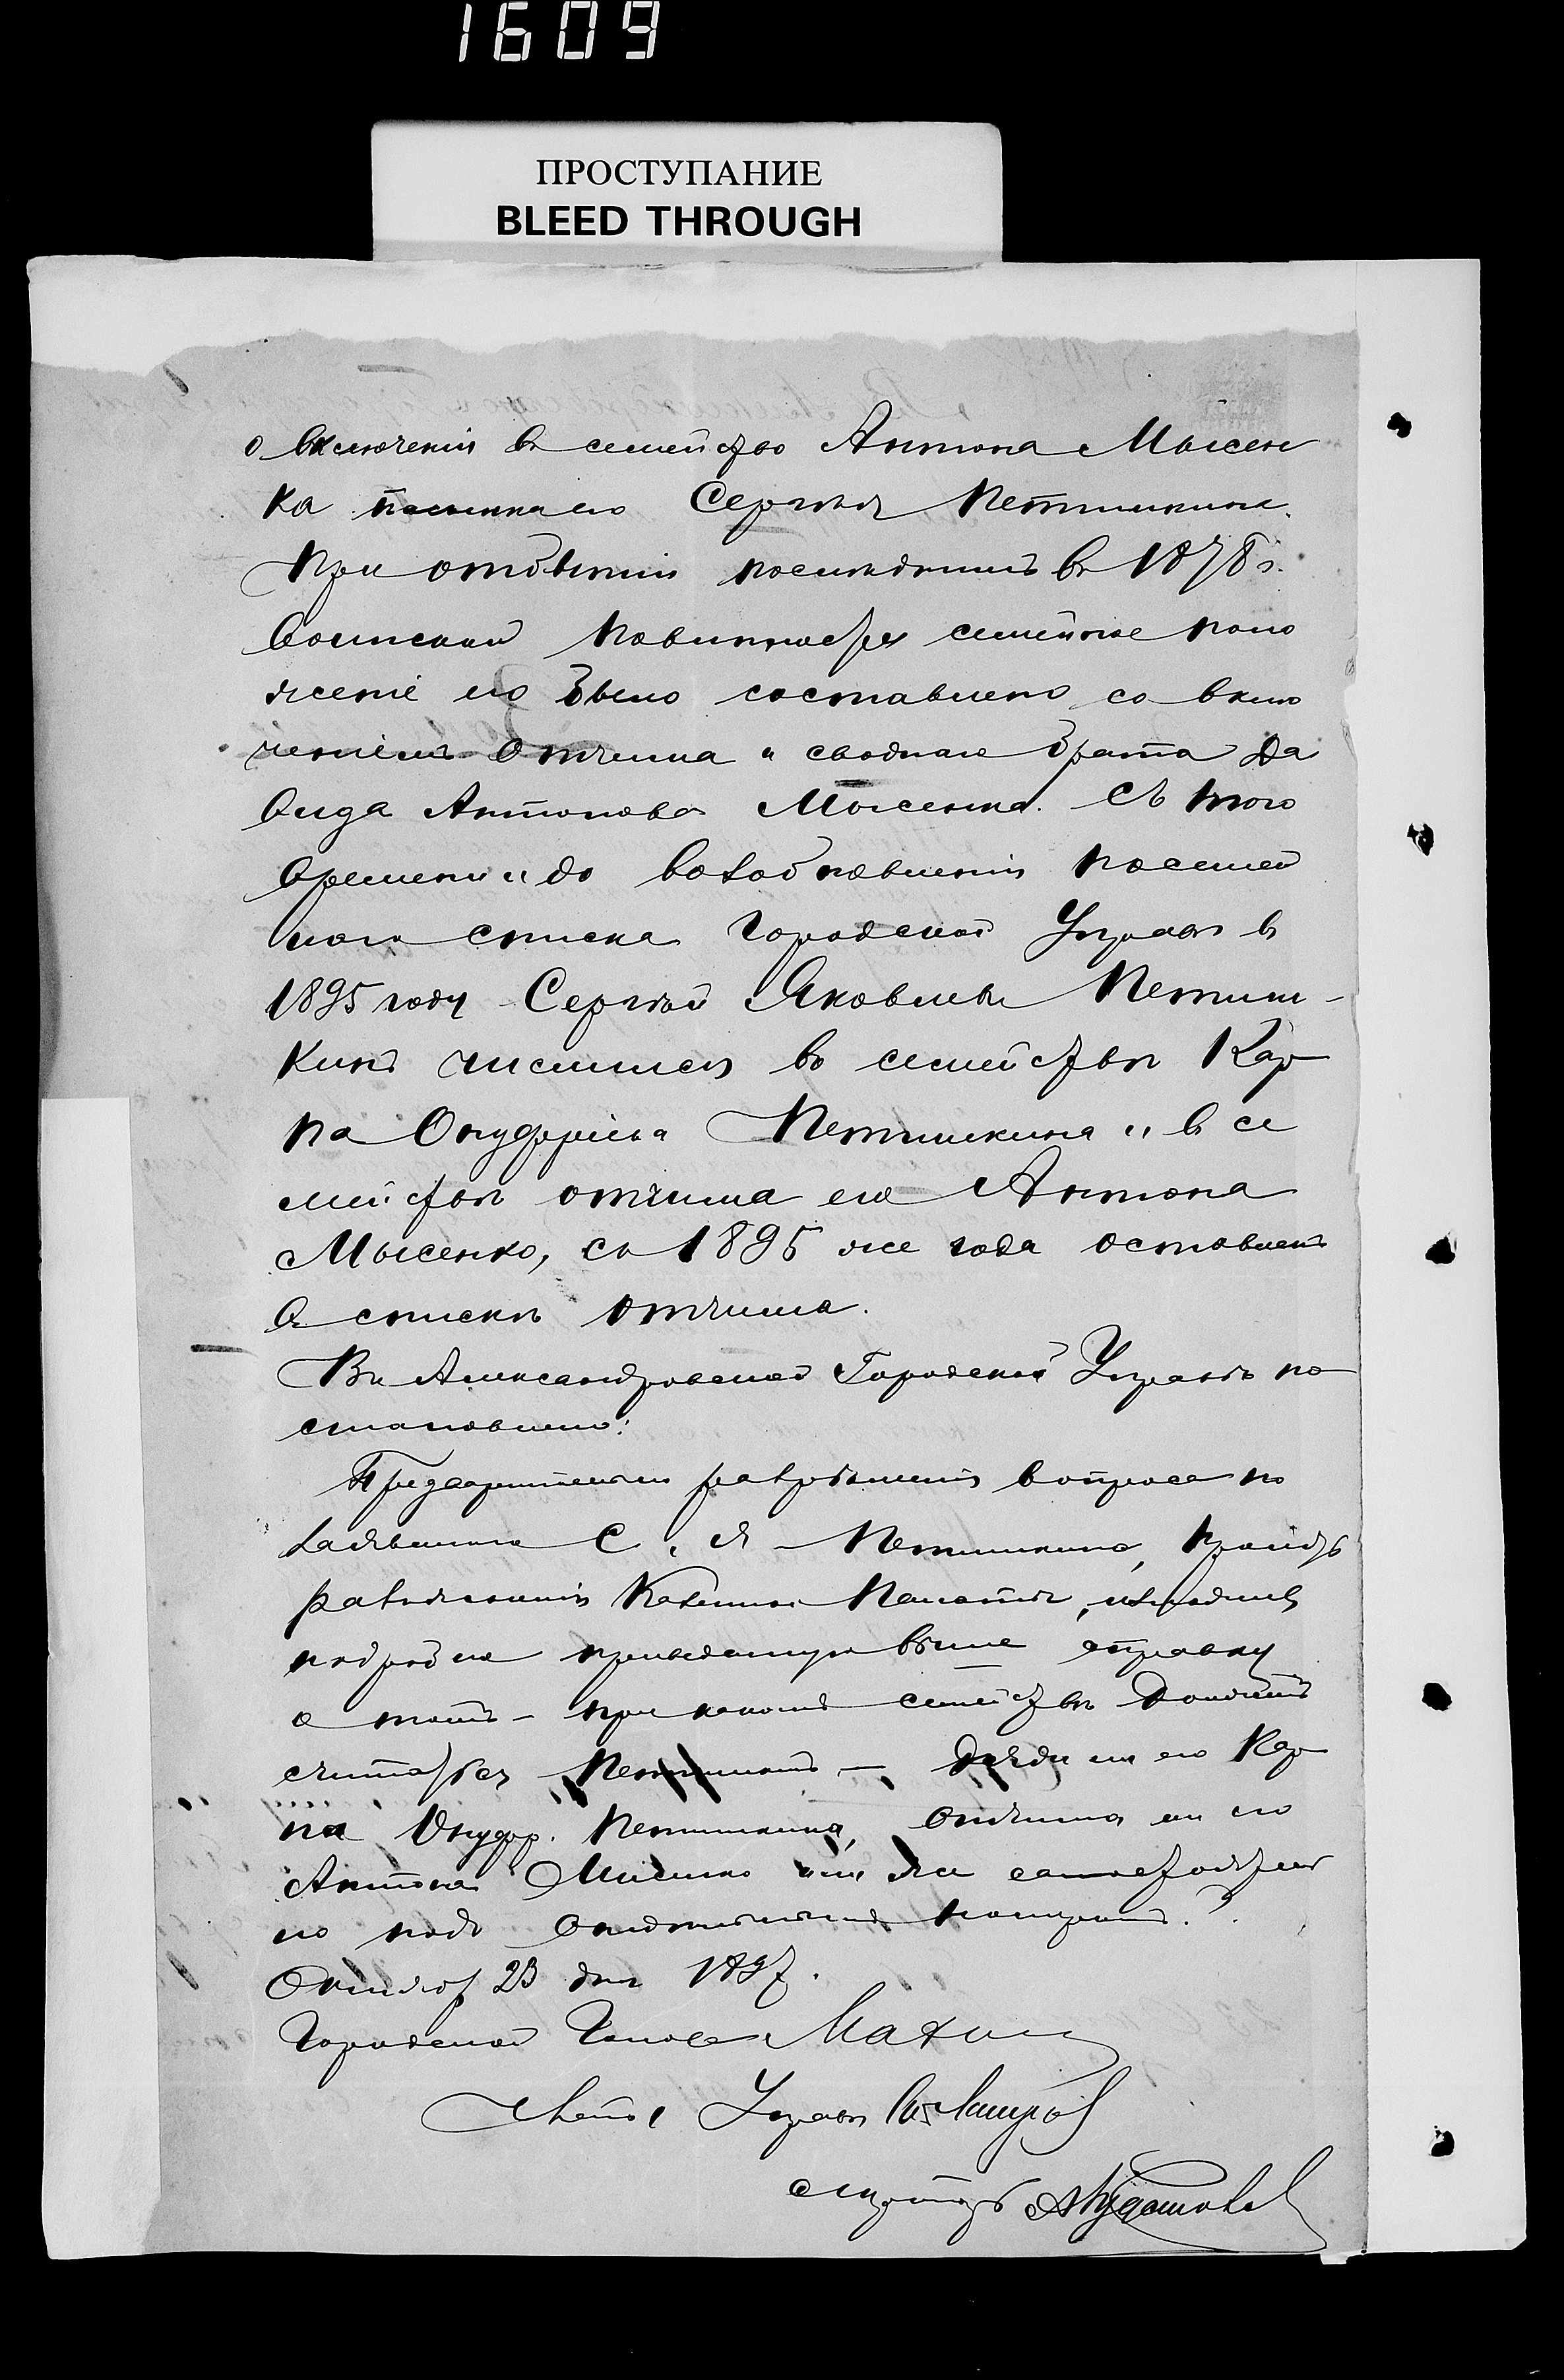 1609
ПРОСТУПАНИЕ
BLEED THROUGH
о включенiи въ семейство Антона Мысен
ка пасынка его Сергѣя Петишкина.
При отбытiи послѣднимъ въ 1878 г.
воинской повинности семейное поло
женiе его было составлено со вклю
ченiемъ отчима и своднаго брата Да
вида Антонова Мысенка. Съ того
времени и до возобновленiя посемей
наго списка Городской Управы въ
1895 году Сергѣй Яковлевъ Петиш-
кинъ числился въ семействѣ Кар
па Онуфрiева Петишкина и въ се
мействѣ отчима его Антона
Мысенко, съ 1895 же года оставленъ
въ спискѣ отчима.
Въ Александровской Городской Управѣ по
становлено:
Предварительно разрѣшенiя вопроса по
заявленiю С. Я. Петишкина, просить
разъясненiя Казенной Палаты, изложивъ
подробно приведенную выше справку
о томъ - при какомъ семействѣ долженъ
считаться Петишкинъ — дяди ли его Кар
па Онуфр. Петишкина, отчима ли его
Антона Мисенко или же самостоятель
но подъ отдѣльнымъ номеромъ.?
Октября 23 дня 1897.
Городской Голова
Члены Управы
Секретарь